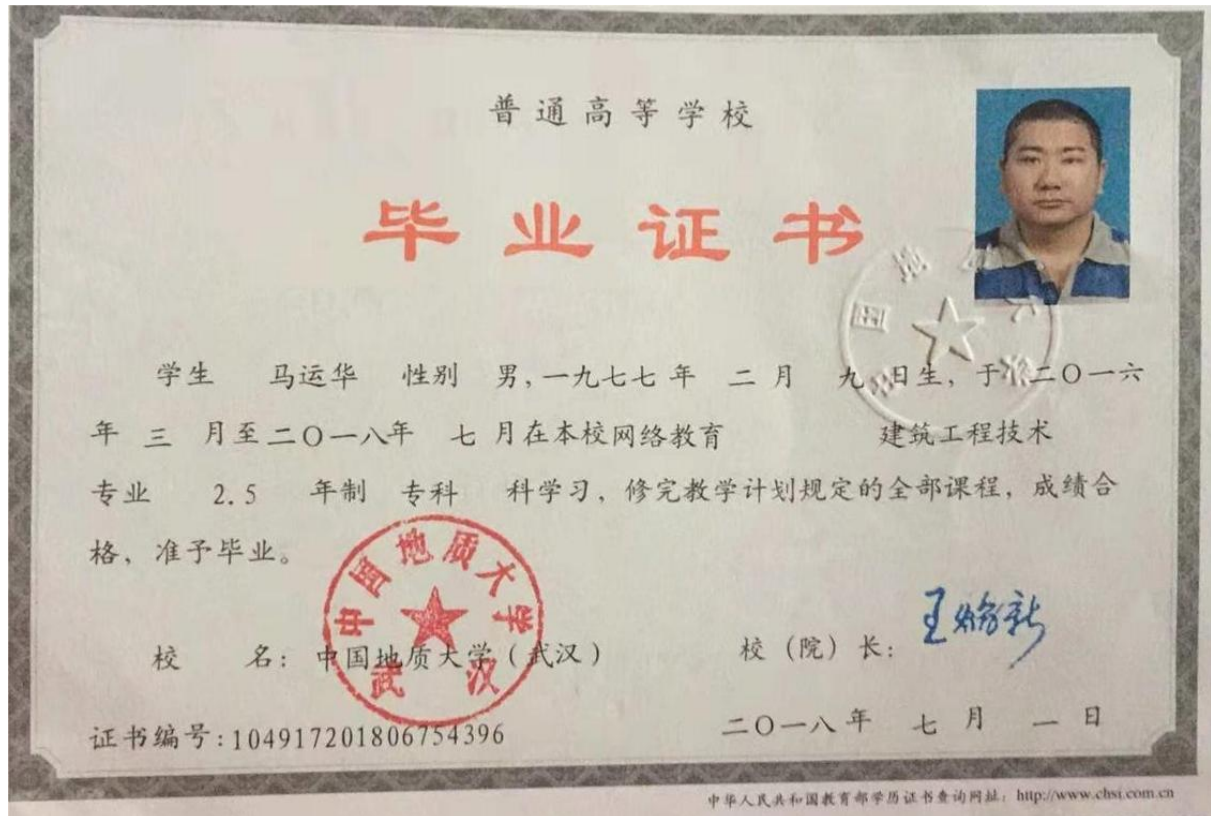 普通高等学校
毕业证书
学生 马运华 性别 男,一九七七年 二月 九日生,于二〇一六
年 三 月至二〇一八年 七月在本校网络教育 建筑工程技术
专业 2.5 年制 专科 科学习,修完教学计划规定的全部课程,成绩合
格,准予毕业。
中国地质大学
武汉
校 名:中国地质大学(武汉) 校(院)长:
证书编号:104917201806754396 二〇一八年 七月 一日
中华人民共和国教育部学历证书查询网址:http://www.chsi.com.cn